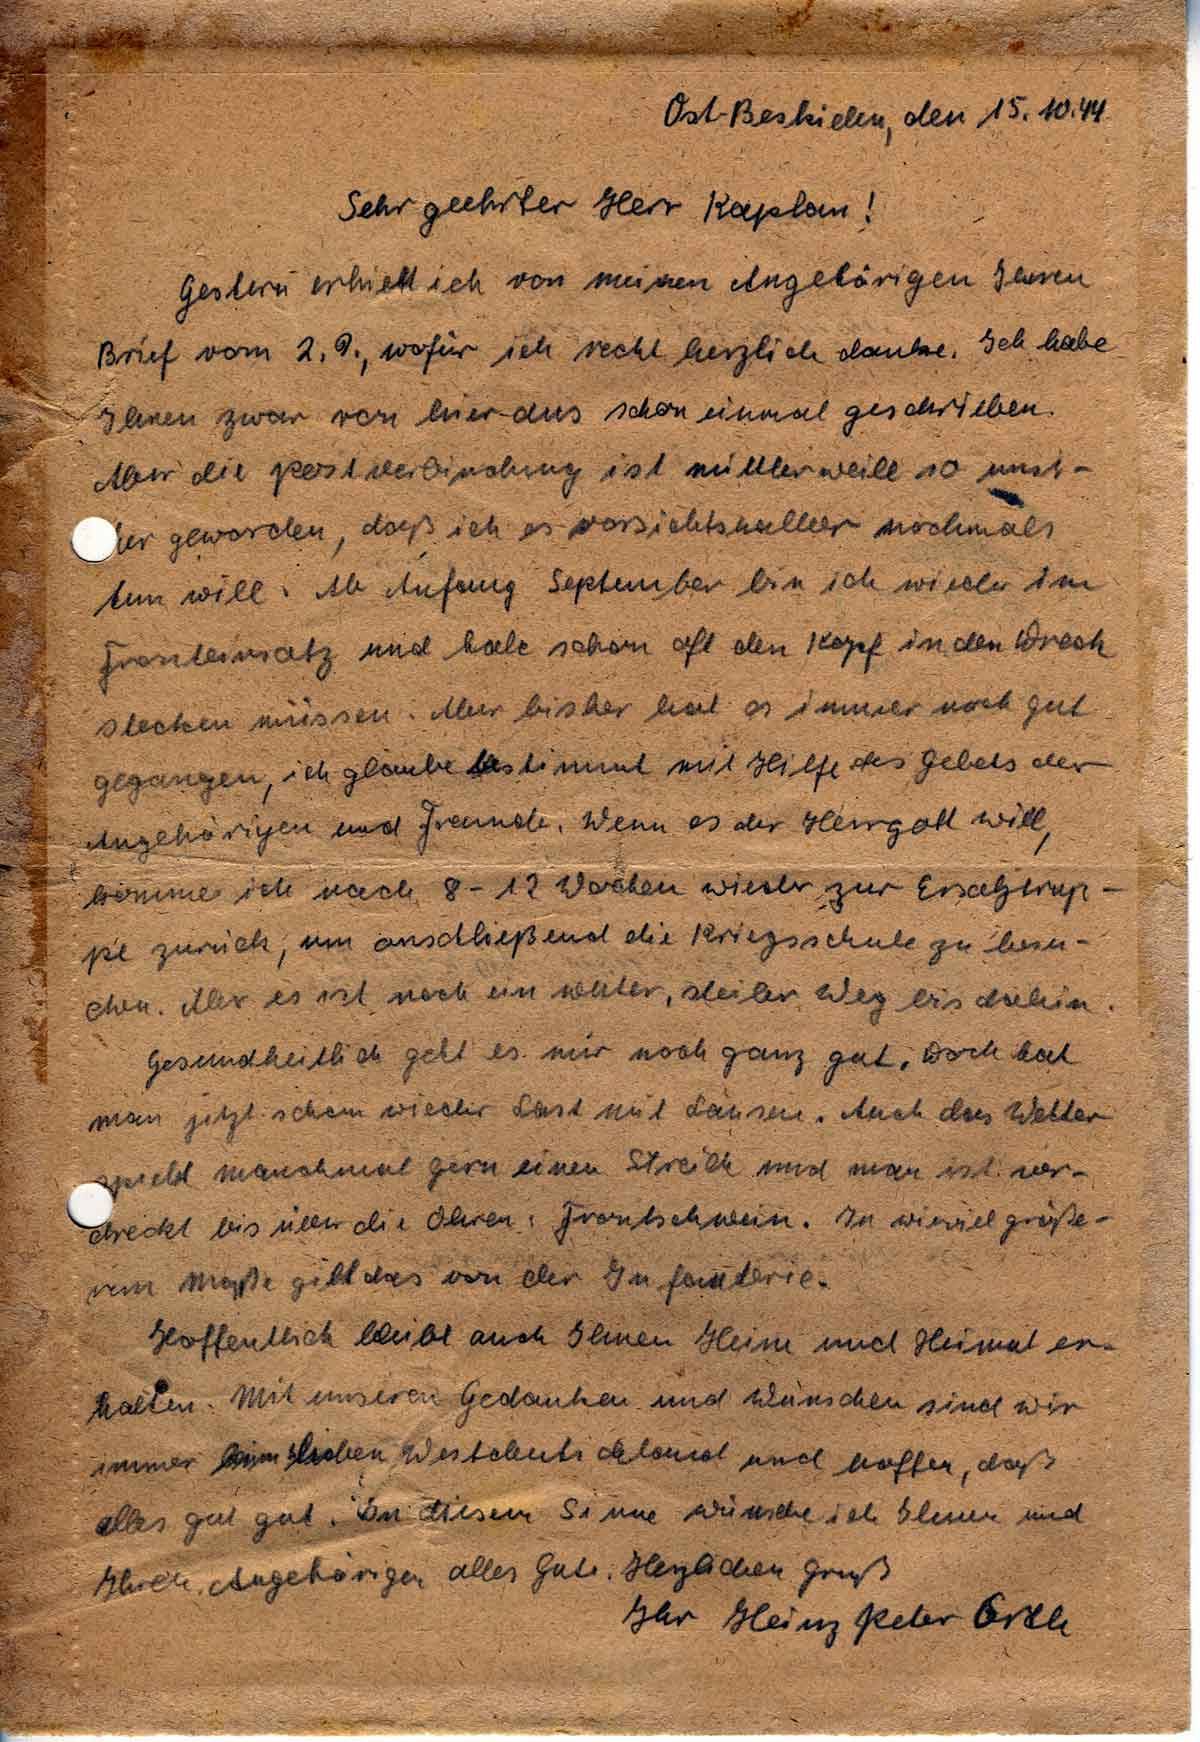 Ost-Beskiden, den 15.10.44.
Sehr geehrter Herr Kaplan!
Gestern erhielt ich von meinen Angehörigen Ihren
Brief vom 2.9., wofür ich recht herzlich danke. Ich habe
Ihnen zwar von hier aus schon einmal geschrieben.
Aber die Postverbindung ist mittlerweile so unsi-
cher geworden, daß ich es vorsichtshalber nochmals
tun will. Ab Anfang September bin ich wieder im
Fronteinsatz und habe schon oft den Kopf in den Dreck
stecken müssen. Aber bisher hat es immer noch gut
gegangen, ich glaube bestimmt mit Hilfe des Gebets der
Angehörigen und Freunde. Wenn es der Herrgott will,
komme ich nach 8-12 Wochen wieder zur Ersatztrup-
pe zurück, um anschließend die Kriegsschule zu besu-
chen. Aber es ist noch ein weiter, steiler Weg bis dahin.
Gesundheitlich geht es mir noch ganz gut. Doch hat
man jetzt schon wieder Last mit Läusen. Auch das Wetter
spielt manchmal gern einen Streich und man ist ver-
dreckt bis über die Ohren: Frontschwein. In wieviel größe-
rem Maße gilt das von der Infanterie.
Hoffentlich bleibt auch Ihnen Heim und Heimat er-
halten. Mit unseren Gedanken und Wünschen sind wir
immer lieben Westdeutschland und hoffen, daß
alles gut gut. In diesem Sinne wünsche ich Ihnen und
Ihren Angehörigen alles Gute. Herzlichen Gruß
Ihr Heinz Peter Orth